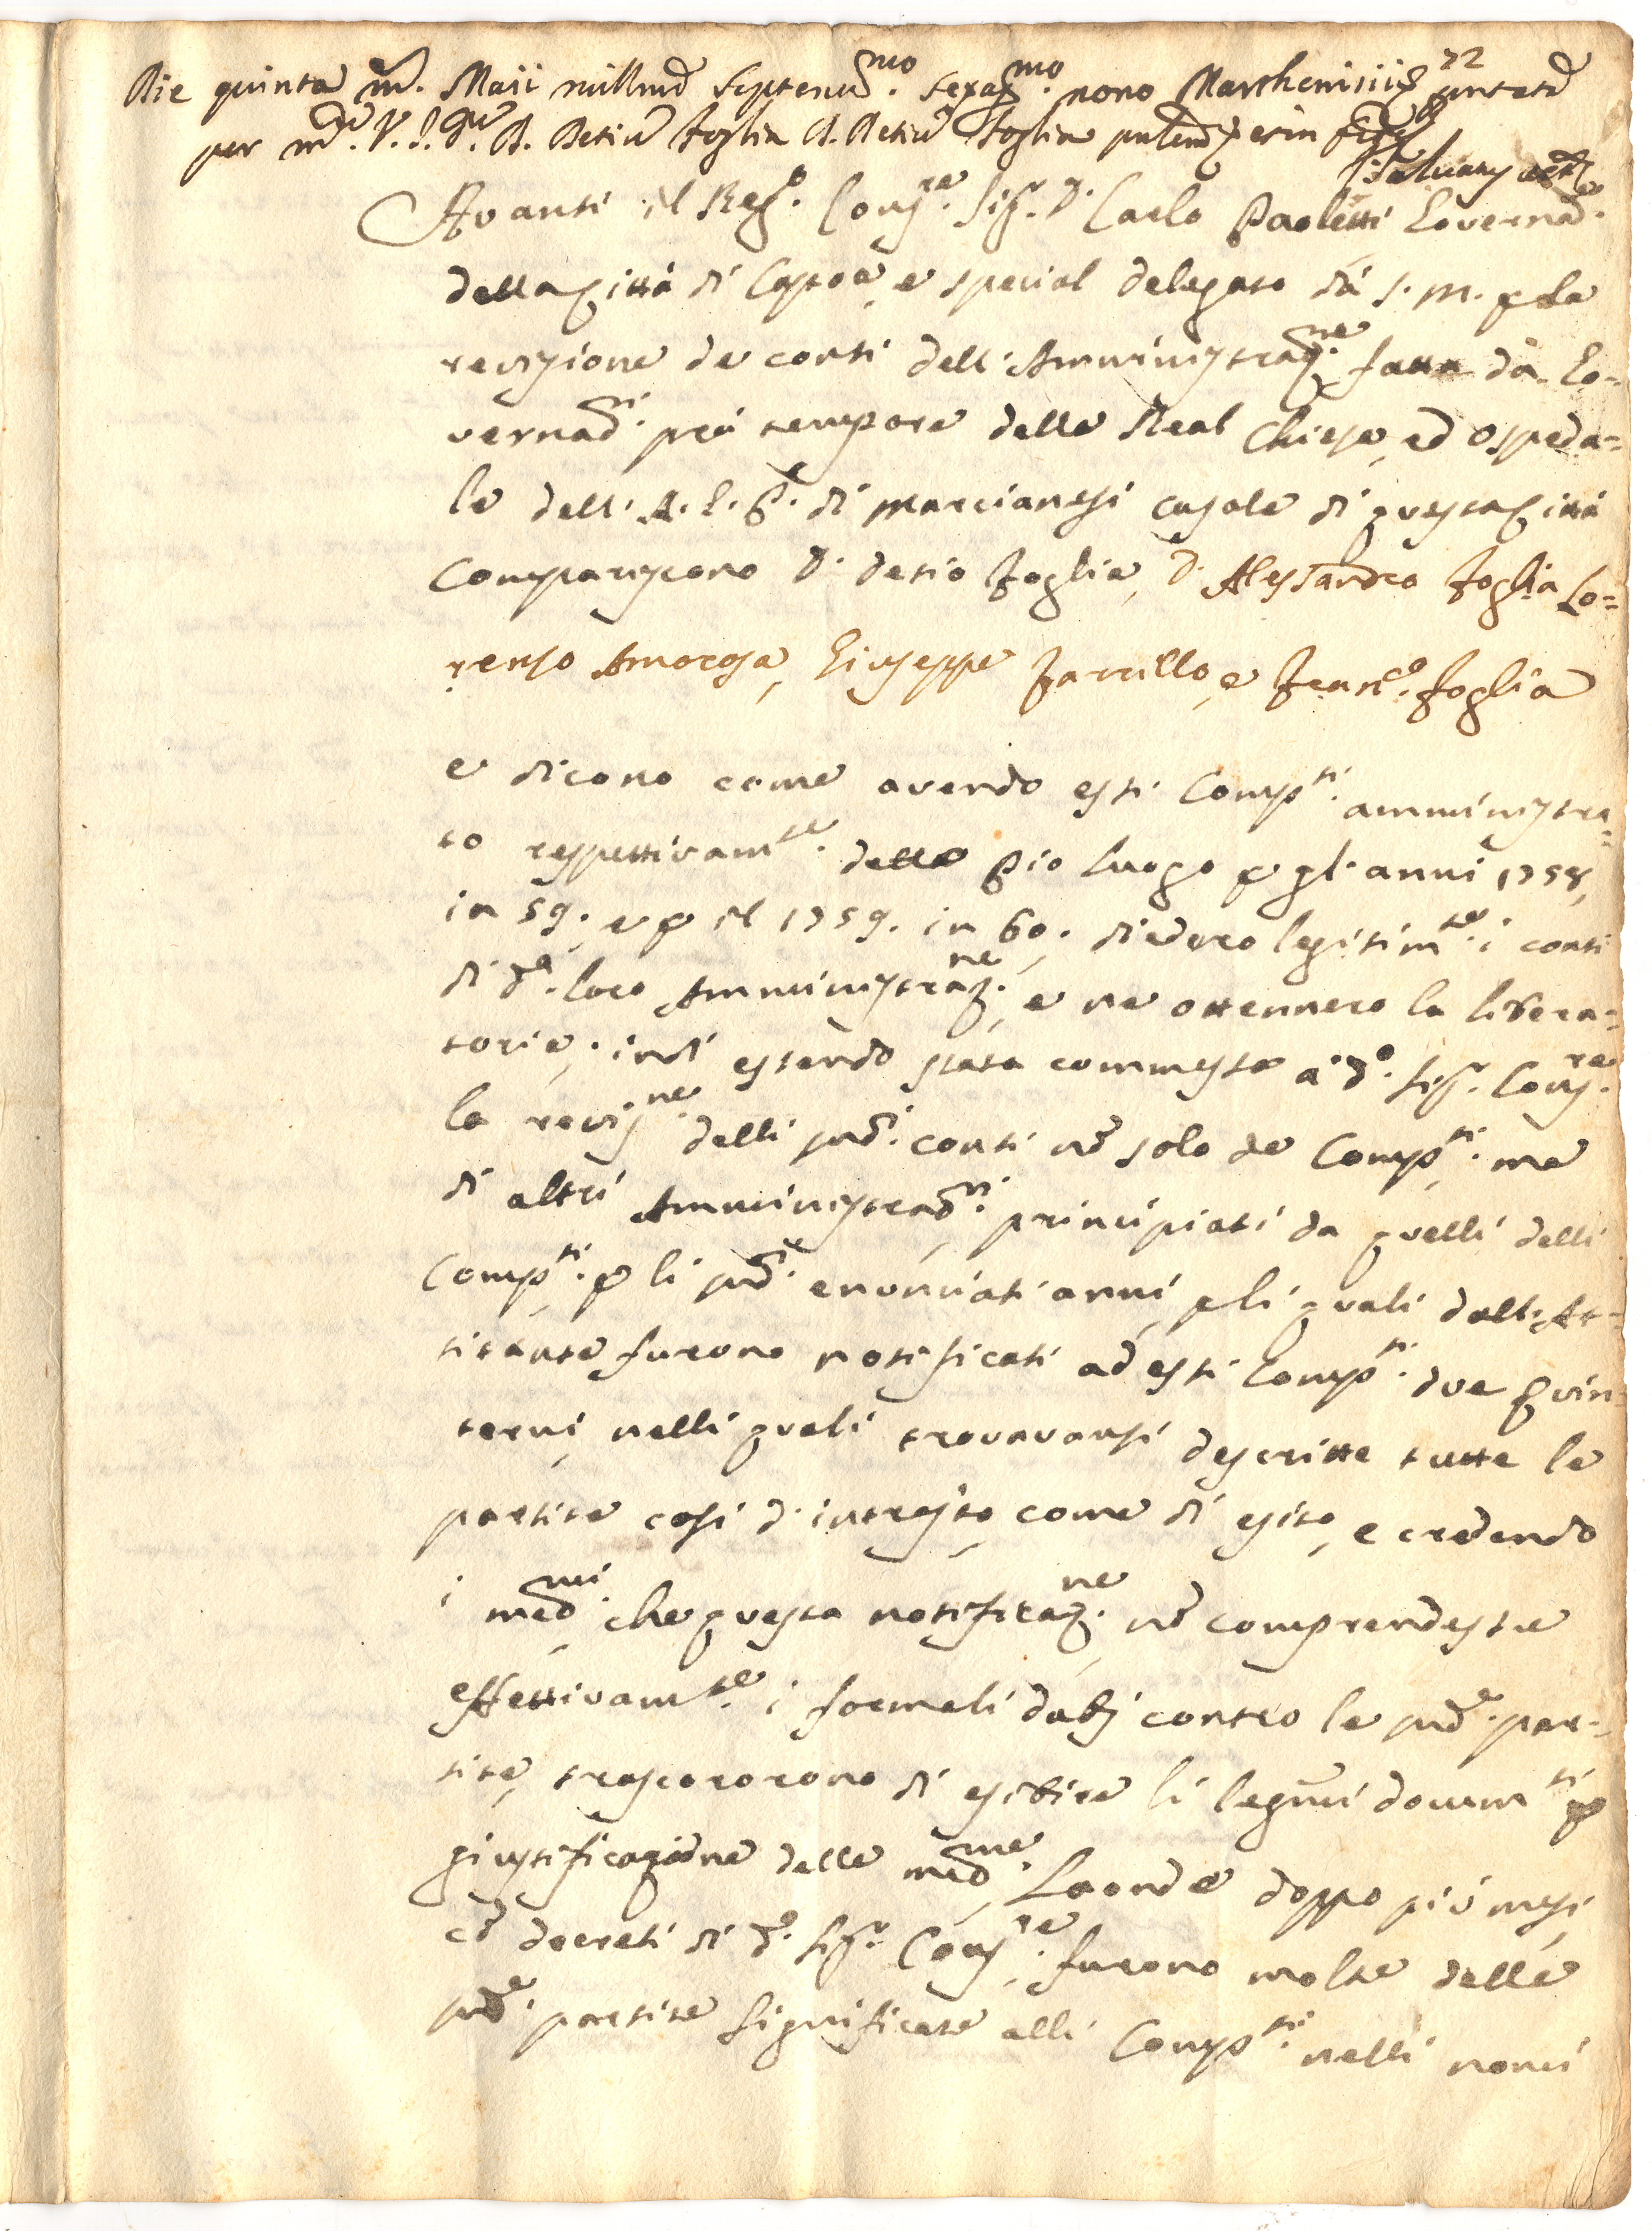 22
Die quinta m. Maii millmo Septenmo. sexagmo. nono Marthenisiis pntata
per m. V. J. D. D. Detiu Foglia D. Detiu Foglia
Avanti il Rego. Consre. Sigr. D. Carlo Paoletti Governad.
della Città di Capoa, e special delegato dà S. M. p la
revisione de conti dell'Amministraz.ne fatta dà Go=
vernad.ri pro tempore della Real Chiesa, ed Ospeda=
le dell'A. G. P. di Marcianesi casale di questa Città
Compariscono D. Detio Foglia, D. Alessandro Foglia Lo=
renzo Amorosa, Giuseppe Zarrillo, e Franco. Foglia
e dicono come avendo essi Comp.ti amministra=
to respettivam.te detto Pio Luogo p gl'anni 1758,
in 59. e p il 1759. in 60. diedero legitim.te i conti
di d.a loro Amministraz.ne, e ne ottennero la libera=
toria; indi essendo stata commessa a d.o Sig.r Cons.re
la revis.ne delli pnd.i conti nò solo de Comp.ti, ma
di altri Amministrad.ri principiati da quelli delli
Comp.ti, p li pnd.i enunciati anni, p li quali dall'At=
titante furono notificati ad essi Comp.ti due quin
terni, nelli quali trovavansi descritte tutte le
partite così d'introito, come di esito, e credendo
i med.mi, che questa notificaz.ne nò comprendesse
effettivam.te i formali dubj contro le pnd.e par=
tite, trascororono di esibire li legmi docum.ti p
giustificazione delle med.me, Laonde doppo più mesi
cò decreti di d.o Sig.r Cons.re, furono molte delle
pnd.e partite significate alli Comp.ti nelli nomi